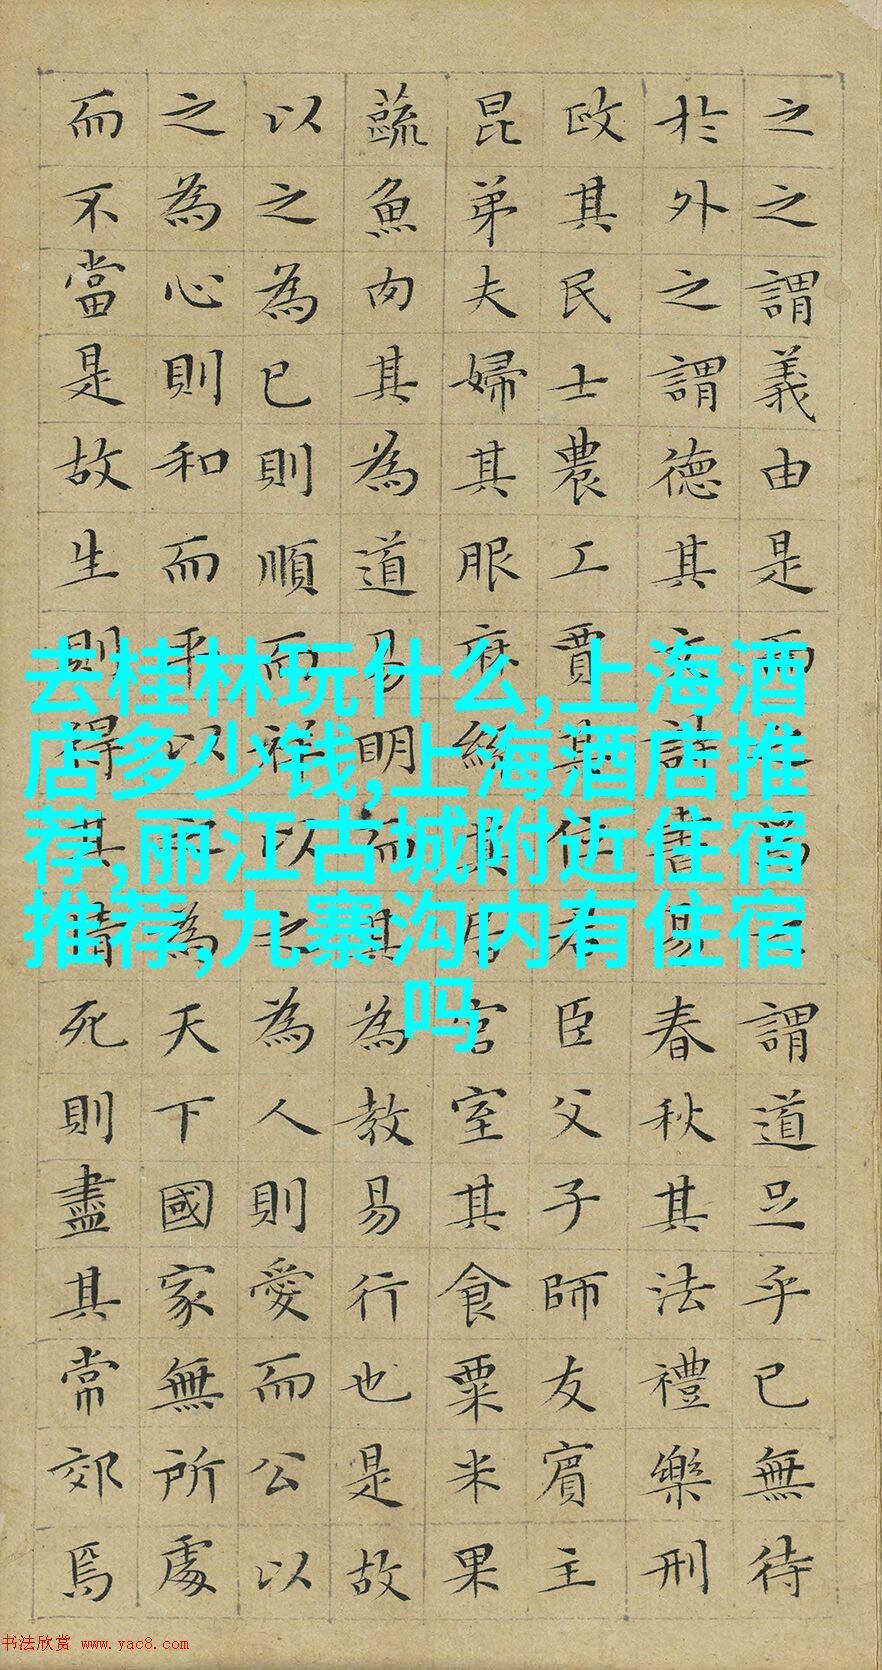 之之謂義由是而焉謂道足乎已無待
於外之謂德其文詩書易春秋其法禮樂刑
政其民士農工賈其位君臣父子師友賓主
昆弟夫婦其服麻絲其居宮室其食粟米果
蔬魚肉其為道易明而其為教易行也是故
以之為已則順而祥以之為人則愛而公以
之為心則和而平以之為天下國家無所處
而不當是故生則得其情死則盡其常郊焉
去桂林玩什么,上海酒
店多少钱,上海酒店推
荐,丽江古城附近住宿
推荐,九寨沟内有住宿
吗
书法欣赏 www.yac8.com